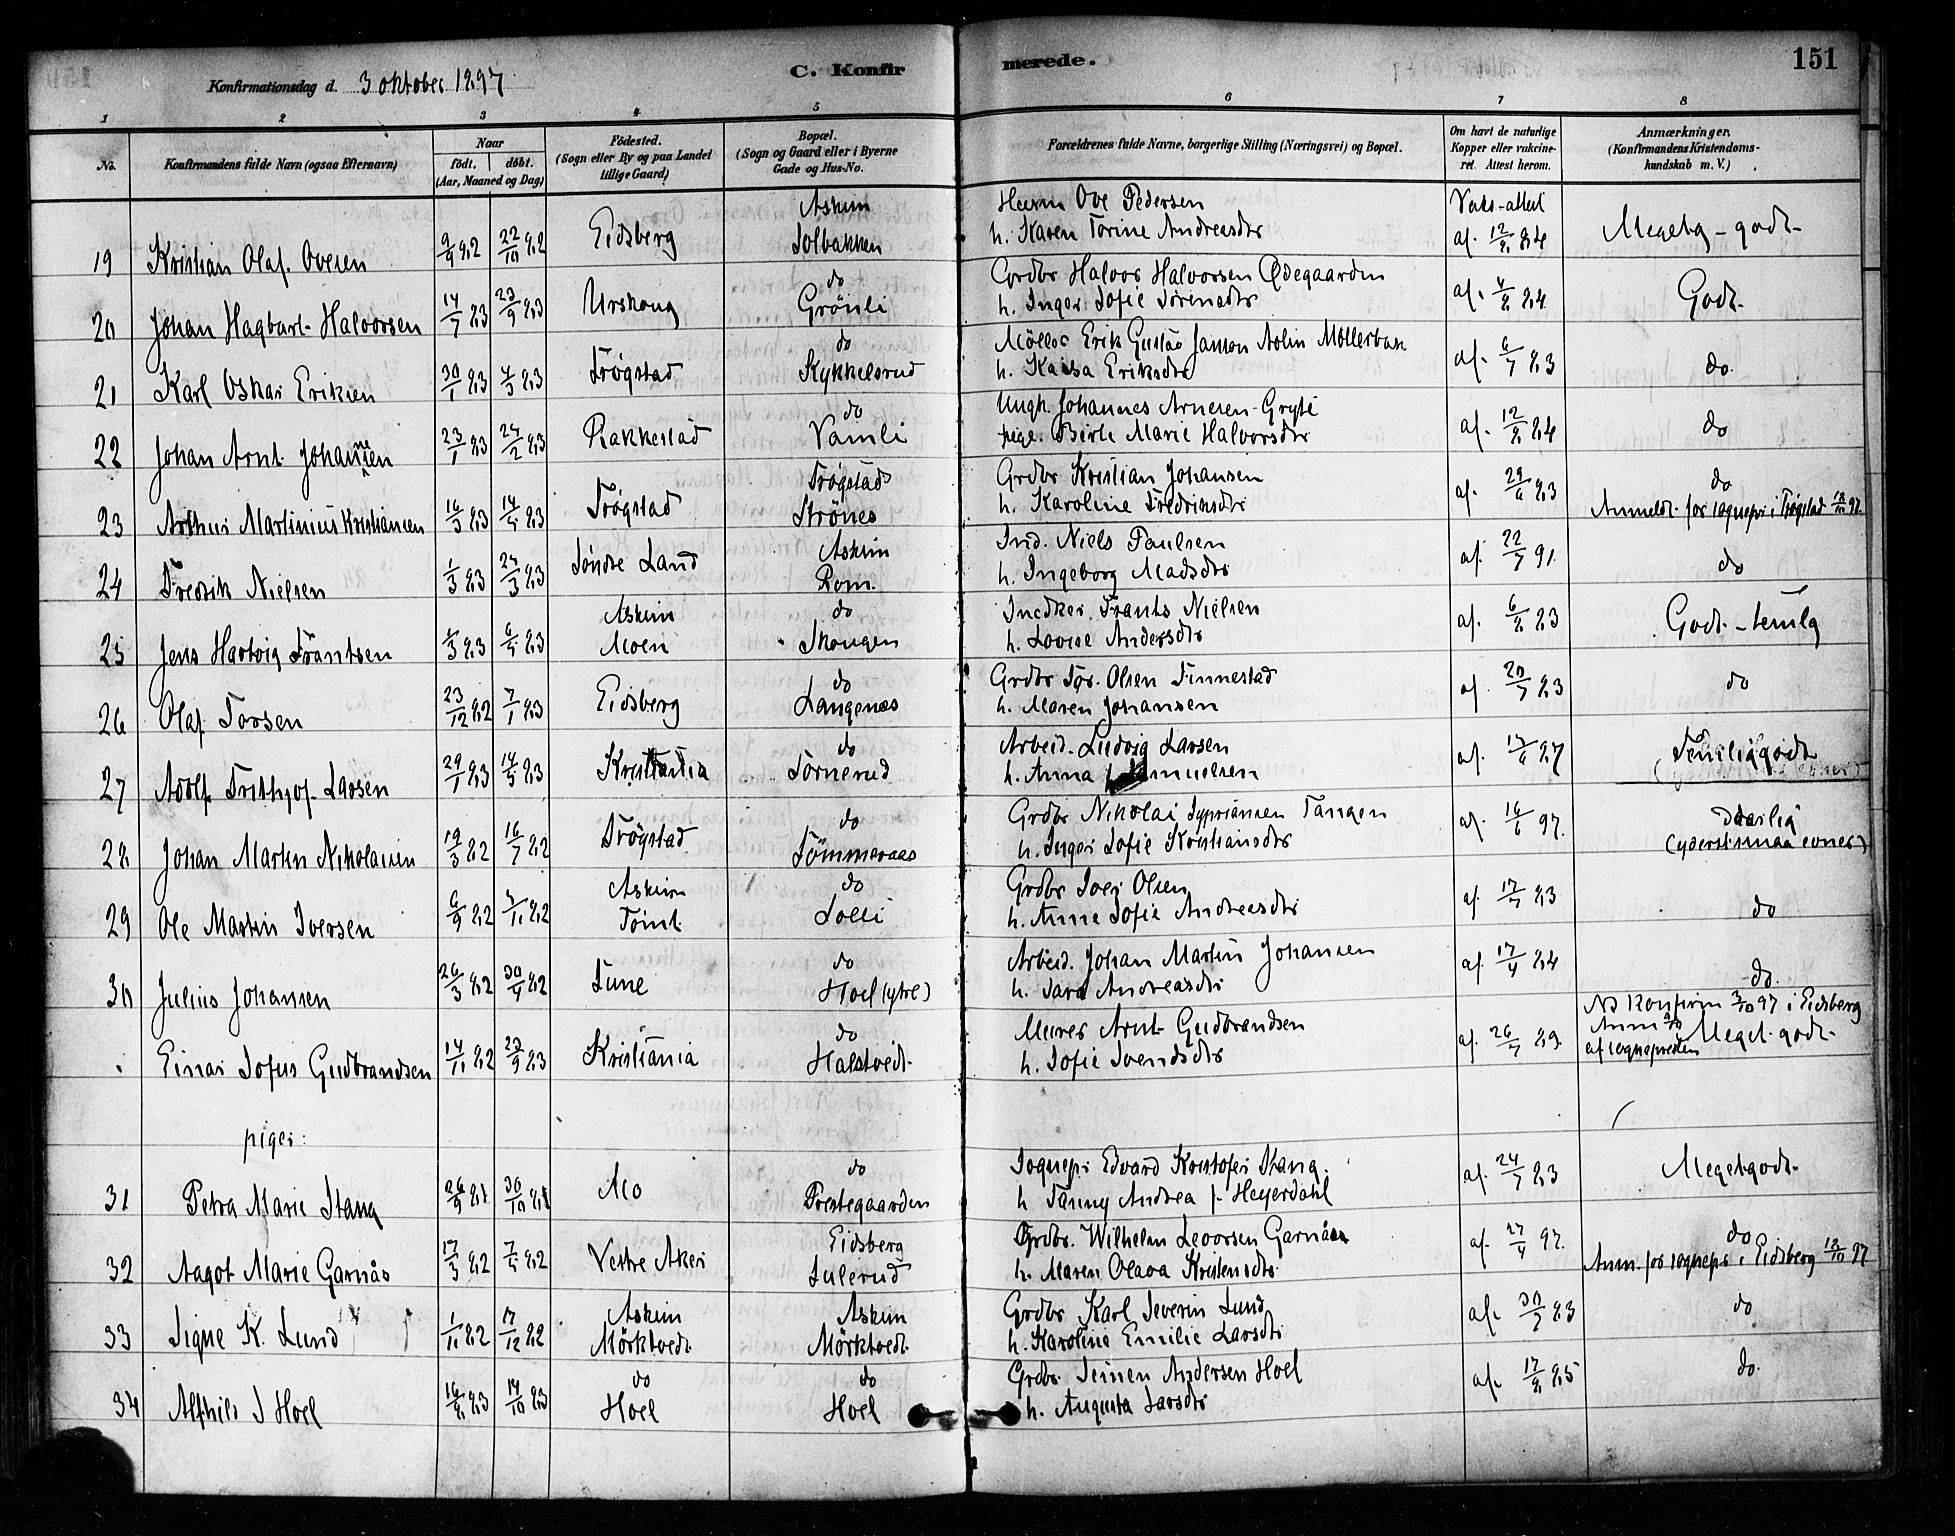 Konfirmationsdag d. 3 oktober 1897
C. Konfirmerede.
151
1 2 3 4 5 6 7 8
No.
Konfirmandens fulde Navn (ogsaa Efternavn)
Naar
födt. döbt.
(Aar, Maaned og Dag)
Födested.
(Sogn eller By og paa Landet
tillige Gaard)
Bopæl.
(Sogn og Gaard eller i Byerne
Gade og Hus-No.
Forældrenes fulde Navne, borgerlige Stilling (Næringsvei) og Bopæl.
Om havt de naturlige
Kopper eller vakcine-
ret. Attest herom.
Anmærkninger.
(Konfirmandens Kristendoms-
kundskab m. V.)
Askim Ove Pedersen Vaks-attest
19 Kristian Olaf Ovesen 9/9 82 22/10 82 Eidsberg Solbakken h. Karen Torine Andreasdtr af 12/8 84 Megetg - godt
do Halvor Halvorsen Ödegaarden
20 Johan Hagbart Halvorsen 14/7 83 23/9 83 Urskoug Grönli h. Inger Sofie Sörensdtr af 4/8 84 Godt.
do Möller Erik Gustav Janson Nolin
21 Karl Oskar Eriksen 30/1 83 4/3 83 Trögstad Kykkelsrud h. Kaisa Eriksdtr af 6/7 83 do.
do Ungk. Johannes Arnesen
22 Johan Arnt Johannesen 23/1 83 25/2 83 Rakkestad Vamli pige. Birte Marie Halvorsdtr af 12/8 84 do
Trögstad Grdbr Kristian Johansen do
23 Arthur Martinius Kristiansen 16/3 83 14/5 83 Trögstad Strönes h. Karoline Fredriksdtr af 29/6 83 Anmeldt for sognepr i Trögstad 12/10 97.
Askim Ind. Niels Paulsen
24 Fredrik Nielsen 1/3 83 25/3 83 Söndre Land Rom. h. Ingeborg Madsdtr af 22/7 91. do
Askim do Frants Nielsen
25 Jens Hartvig Frantsen 4/3 83 6/5 83 Moen Skougen h. Lovise Andersdtr af 6/8 83 Godt - temlg
do Grdbr Tor Olsen Finnestad
26 Olaf Torsen 23/12 82 7/1 83 Eidsberg Langenes h. Maren Johansen af 20/7 83 do
do Arbeid. Ludvig Larsen
27 Adolf Frithjof Larsen 29/1 83 14/5 83 Kristiania Tornerud h. Anna af 17/6 87 Temlig godt
do Grdbr Nikolai Syprianen Tangen
28 Johan Martin Nikolaisen 19/3 82 16/7 82 Trögstad Tömmeraas h. Inger Sofie Kristiansdtr af 16/6 97. daarlig (yderst smaa evner)
Askim do Grdbr Iver Olsen
29 Ole Martin Iversen 6/9 82 5/11 82 Tomt Solli h. Anne Sofie Andreasdtr af 17/7 83 do
do Arbeid. Johan Martin Johansen
30 Julius Johansen 26/3 82 30/4 82 Tune Hoel (ytre) h. Sara Andreasdtr af 17/4 84 do
do Murer Arnt Gudbrandsen NB Konfirm 3/10 97 i Eidsberg
Einar Sofus Gudbrandsen 14/11 82 23/9 83 Kristiania Halstvedt h. Sofie Svendsdtr af 26/7 89. Anm af sognepresten Meget godt
piger:
do Sognepr Edvard Kristofer Stang.
31 Petra Marie Stang 26/9 81 30/10 81 Mo Prestegaarden h Fanny Andrea f. Heyerdahl af 24/7 83 Meget godt
Eidsberg Grdbr. Wilhelm Leovrsen Garnaas do
32 Aagot Marie Garnås 17/3 82 7/5 82 Vestre Aker Sulerud h. Maren Olava Kristensdtr af 27/4 97. Anm. for sognepr i Eidsberg 12/10 97
Askim Askim Grdbr Karl Severin Lund
33 Signe K. Lund 1/11 82 17/12 82 Mörktvedt Mörktvedt h. Karoline Emilie Larsdtr af 30/7 83 do
do do Grdbr. Simen Andersen Hoel
34 Alfhild S Hoel 16/8 83 14/10 83 Hoel Hoel h. Augusta Larsdtr af 17/8 85 do.